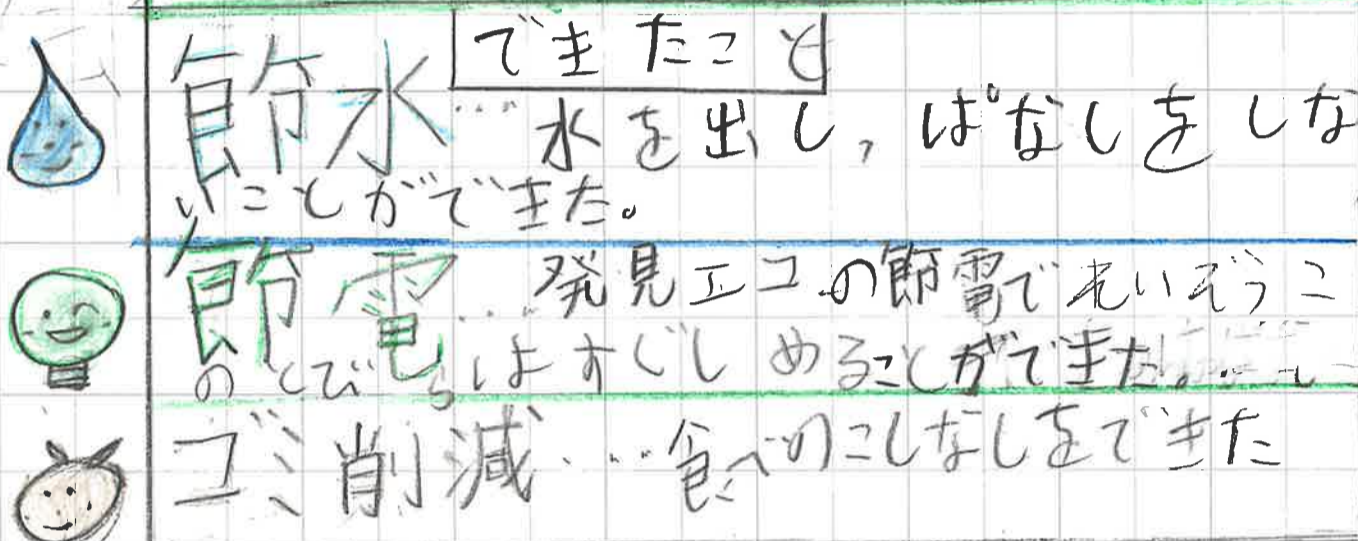 できたこと
節水…水を出し,ぱなしをしな
いことができた。
節電…発見エコの節電でれいぞうこ
のとびらはすぐしめることができた。
ゴミ削減……食べのこしなしをできた